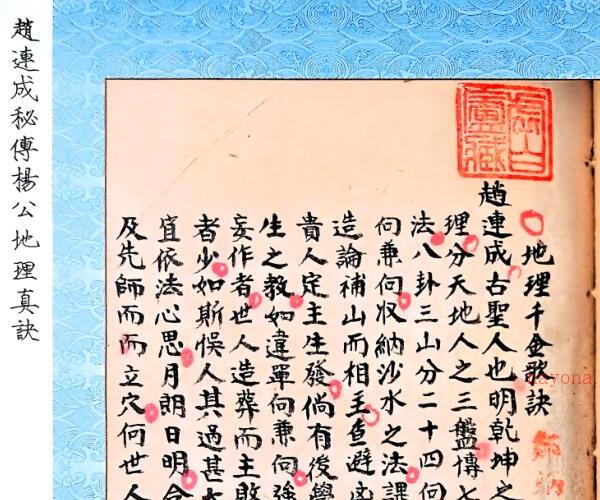 趙連成秘傳楊公地理真訣
虛白廬藏
地理千金歌訣
趙連成古聖人也明乾坤之
理分天地人之三盤傳
法八卦三山分二十四向
向兼向收納沙水之法課
造論補山而相主查避凶
貴人定主生發倘有後學
生之教如違單向兼向強
妄作者世人造葬而主敗
者少如斯悞人其過甚
宜依法心思月朗日明
及先師而而立穴何世人